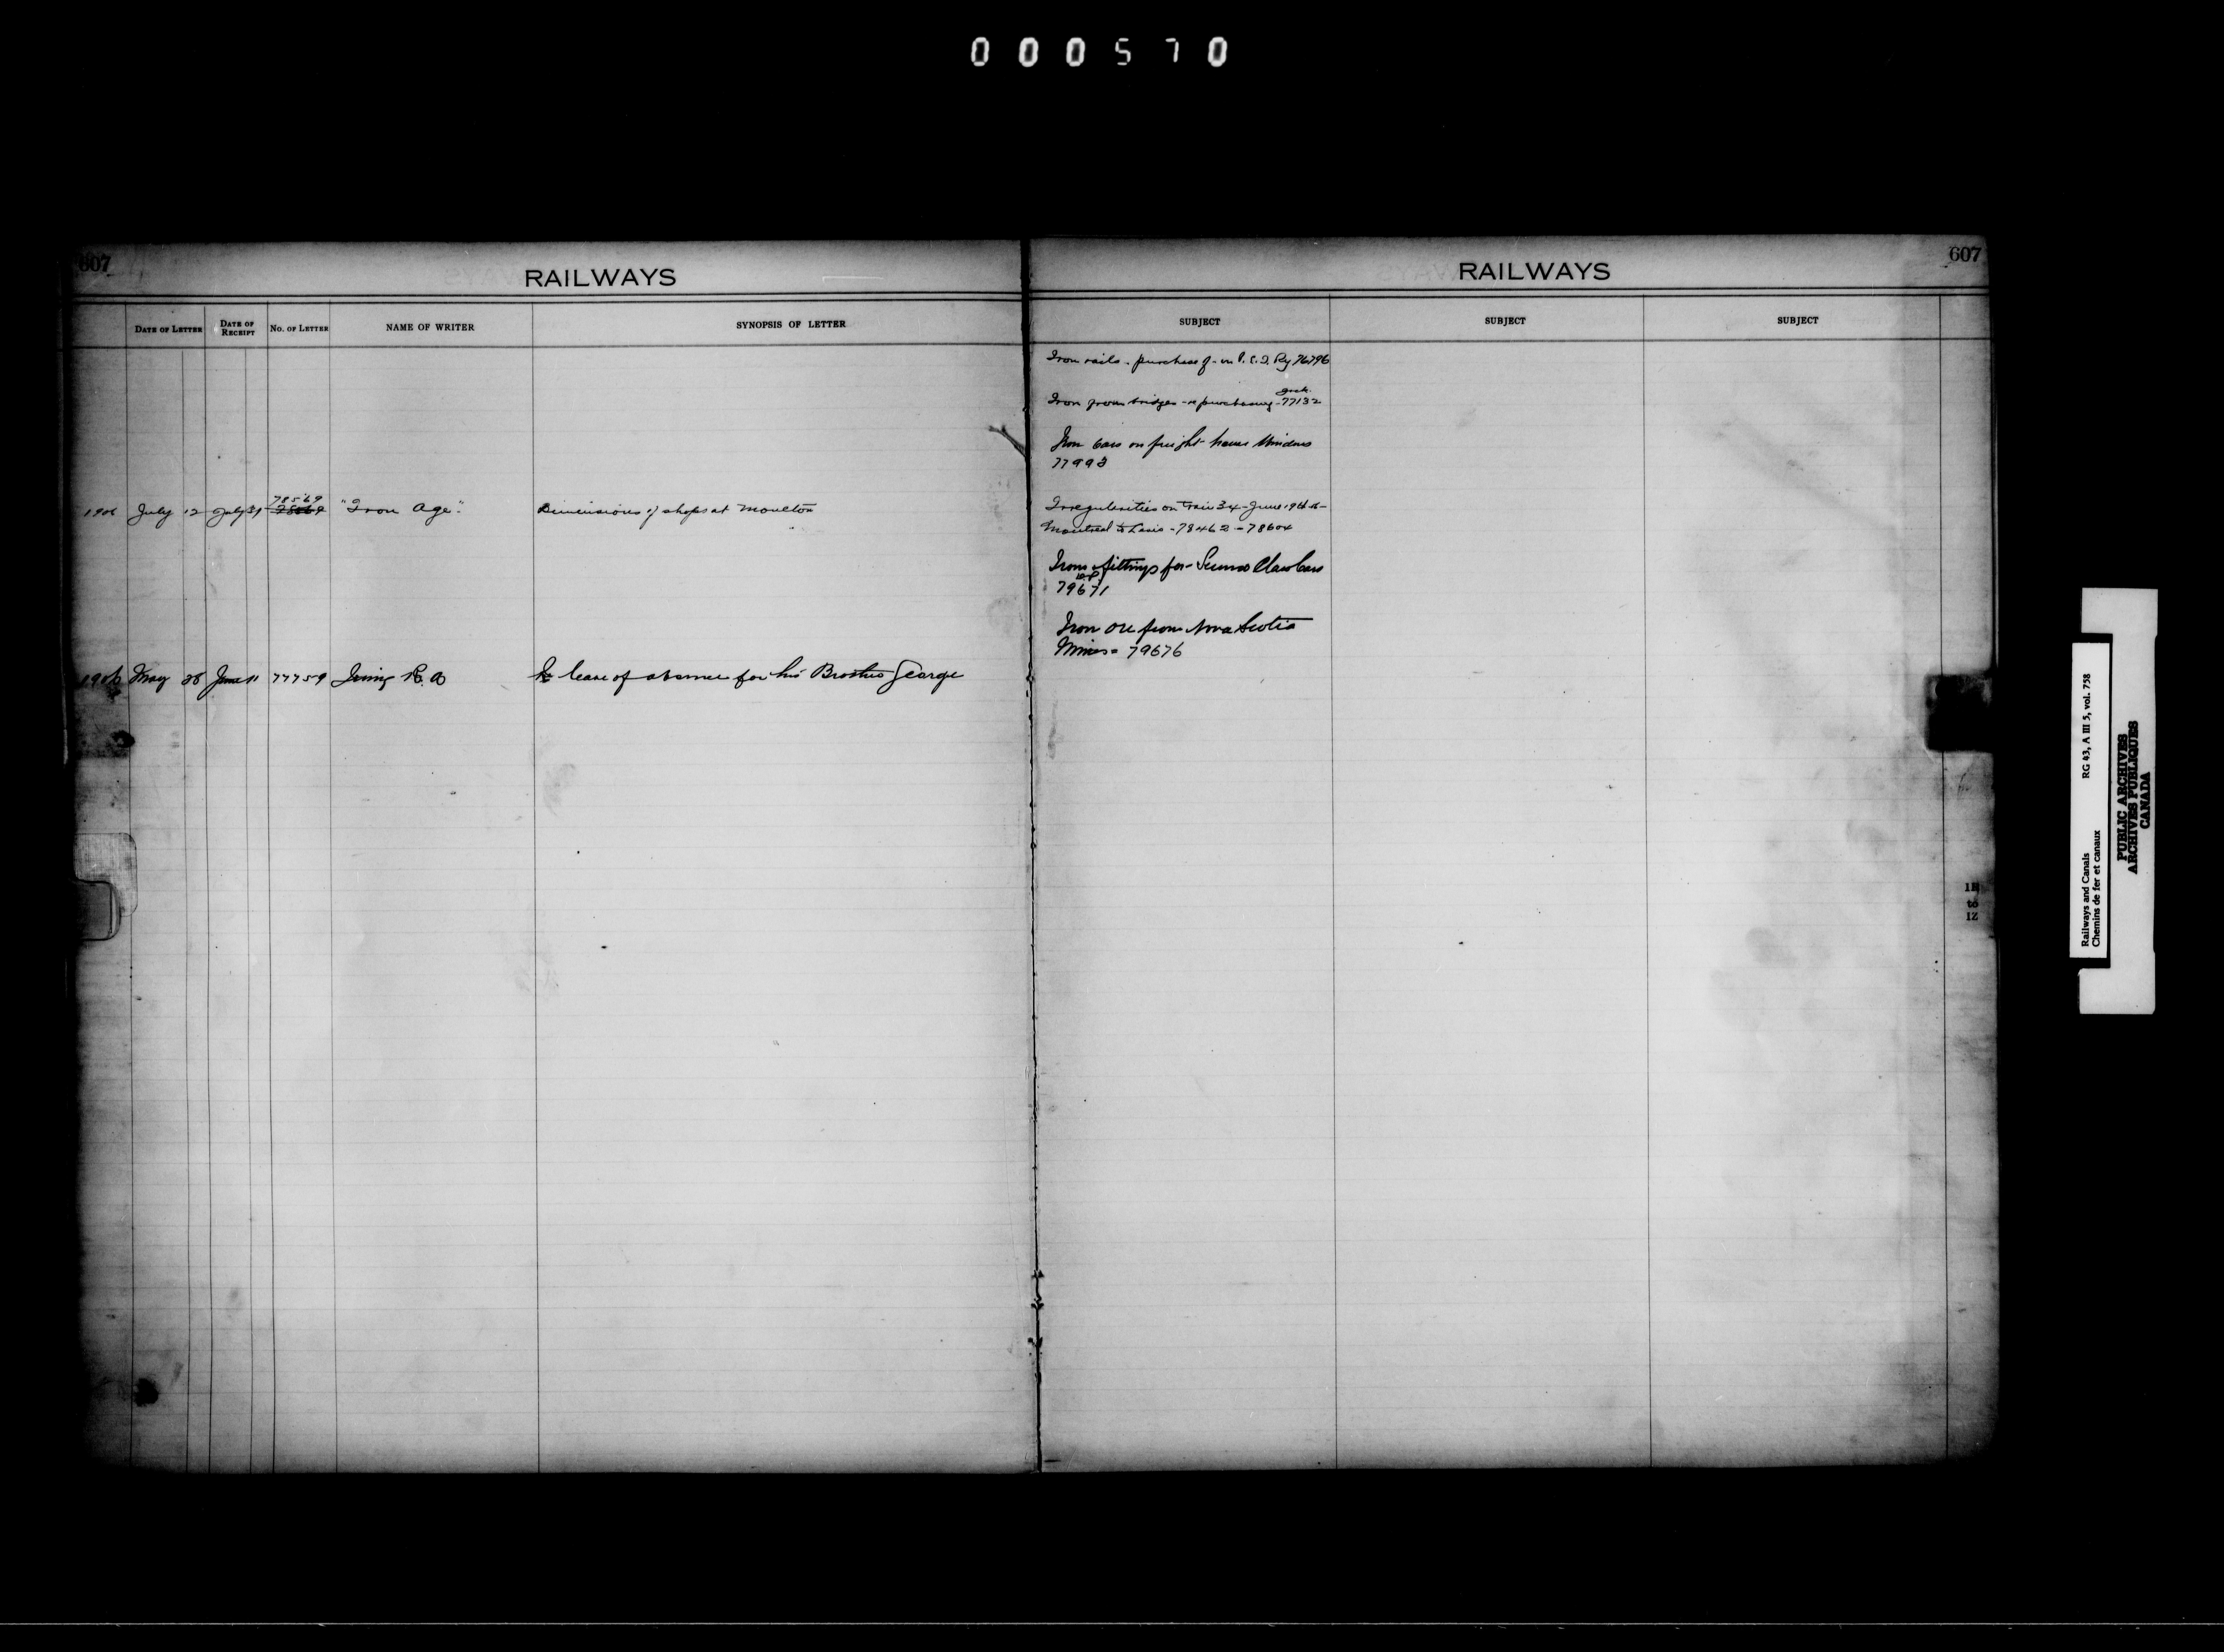 000570
607
RAILWAYS
DATE OF LETTER DATE OF RECEIPT NO. OF LETTER NAME OF WRITER SYNOPSIS OF LETTER
78569
1906 July 12 July 31 "Iron Age" Dimensions of shops at Moncton
1906 May 28 June 11 77759 Irving R. B Re leave of absence for his Brother George
607
RAILWAYS
SUBJECT SUBJECT SUBJECT
Iron rails - purchase of - on P.E.I. Ry 76796
Iron from bridges - re purchasing - 77132
Iron bars on freight house Windows
77993
Irregularities on Train 34 - June 19th
Montreal to Levis - 78462 - 78604
Iron fittings for Second Class Cars
79671
Iron Ore from Nova Scotia
Mines = 79676
to
IZ
Railways and Canals RG 43, A III 5, vol. 758
Chemins de fer et canaux
PUBLIC ARCHIVES
ARCHIVES PUBLIQUES
CANADA